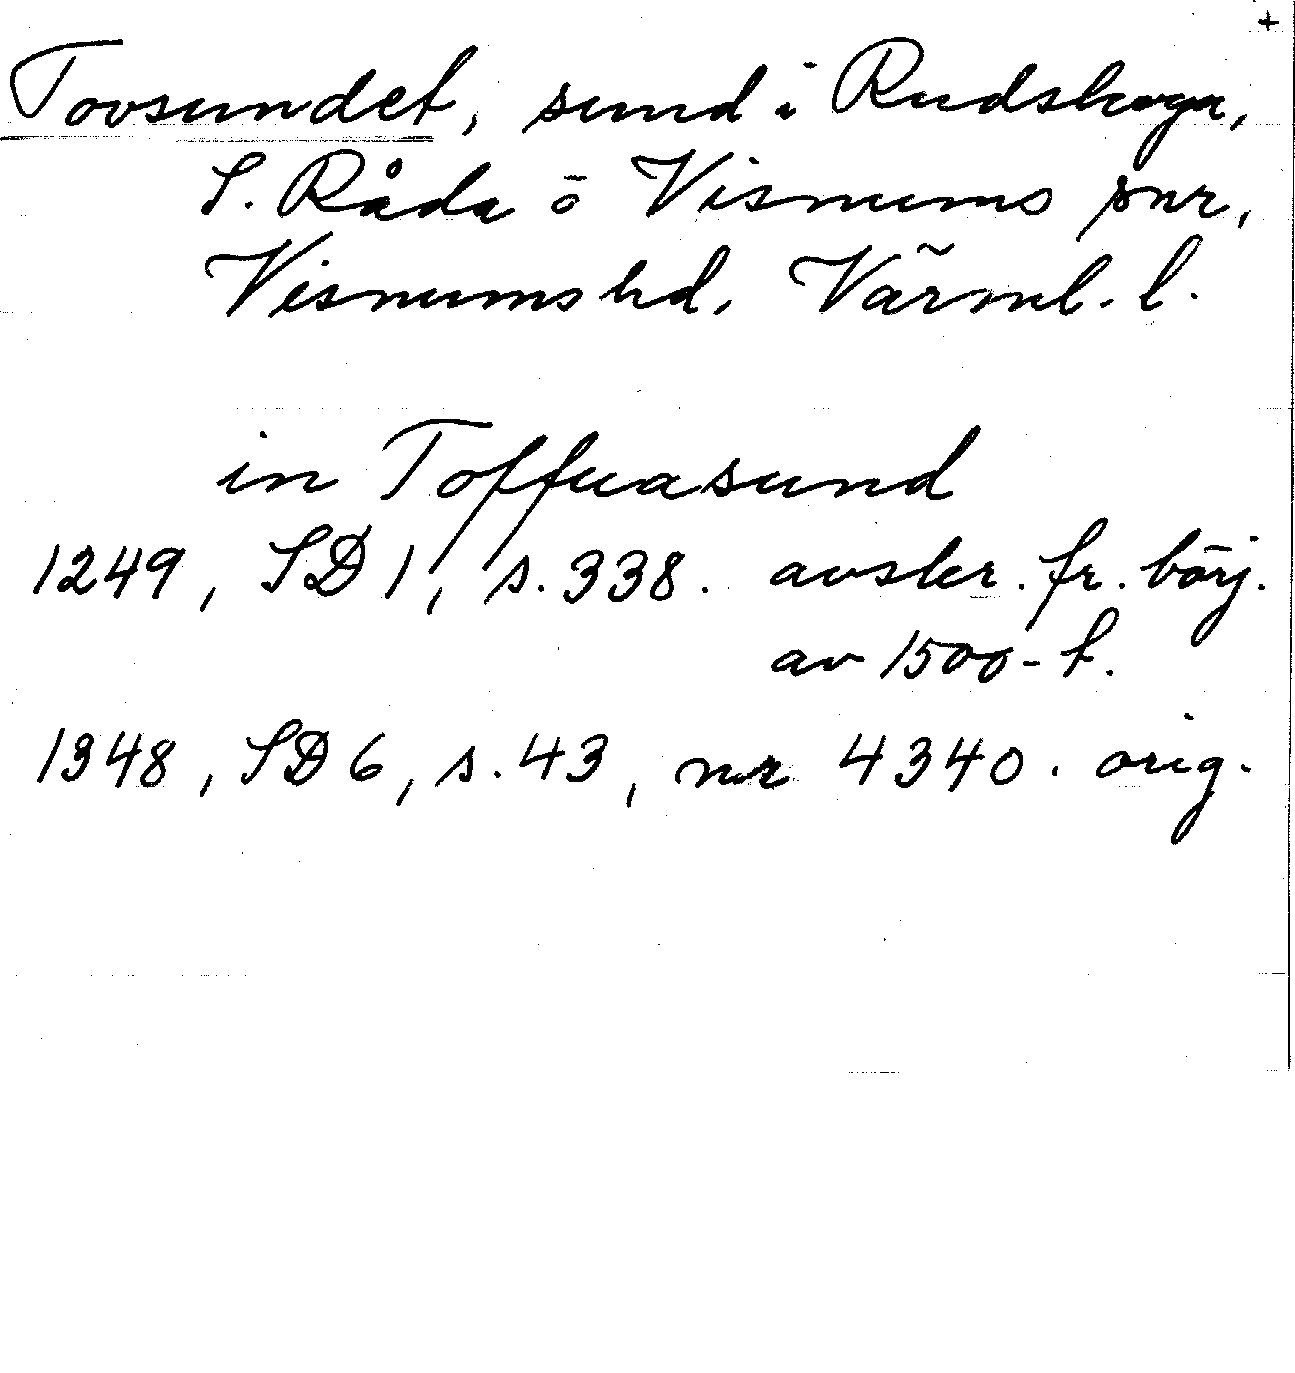 +
Tovsundet, sund i Rudskoga,
S. Råda ō Visnums snr,
Visnums hd, Värml. l.
in Toffuasund
1249, SD 1, s. 338. avskr. fr. börj.
av 1500-t.
1348, SD 6, s. 43, nr 4340. orig.